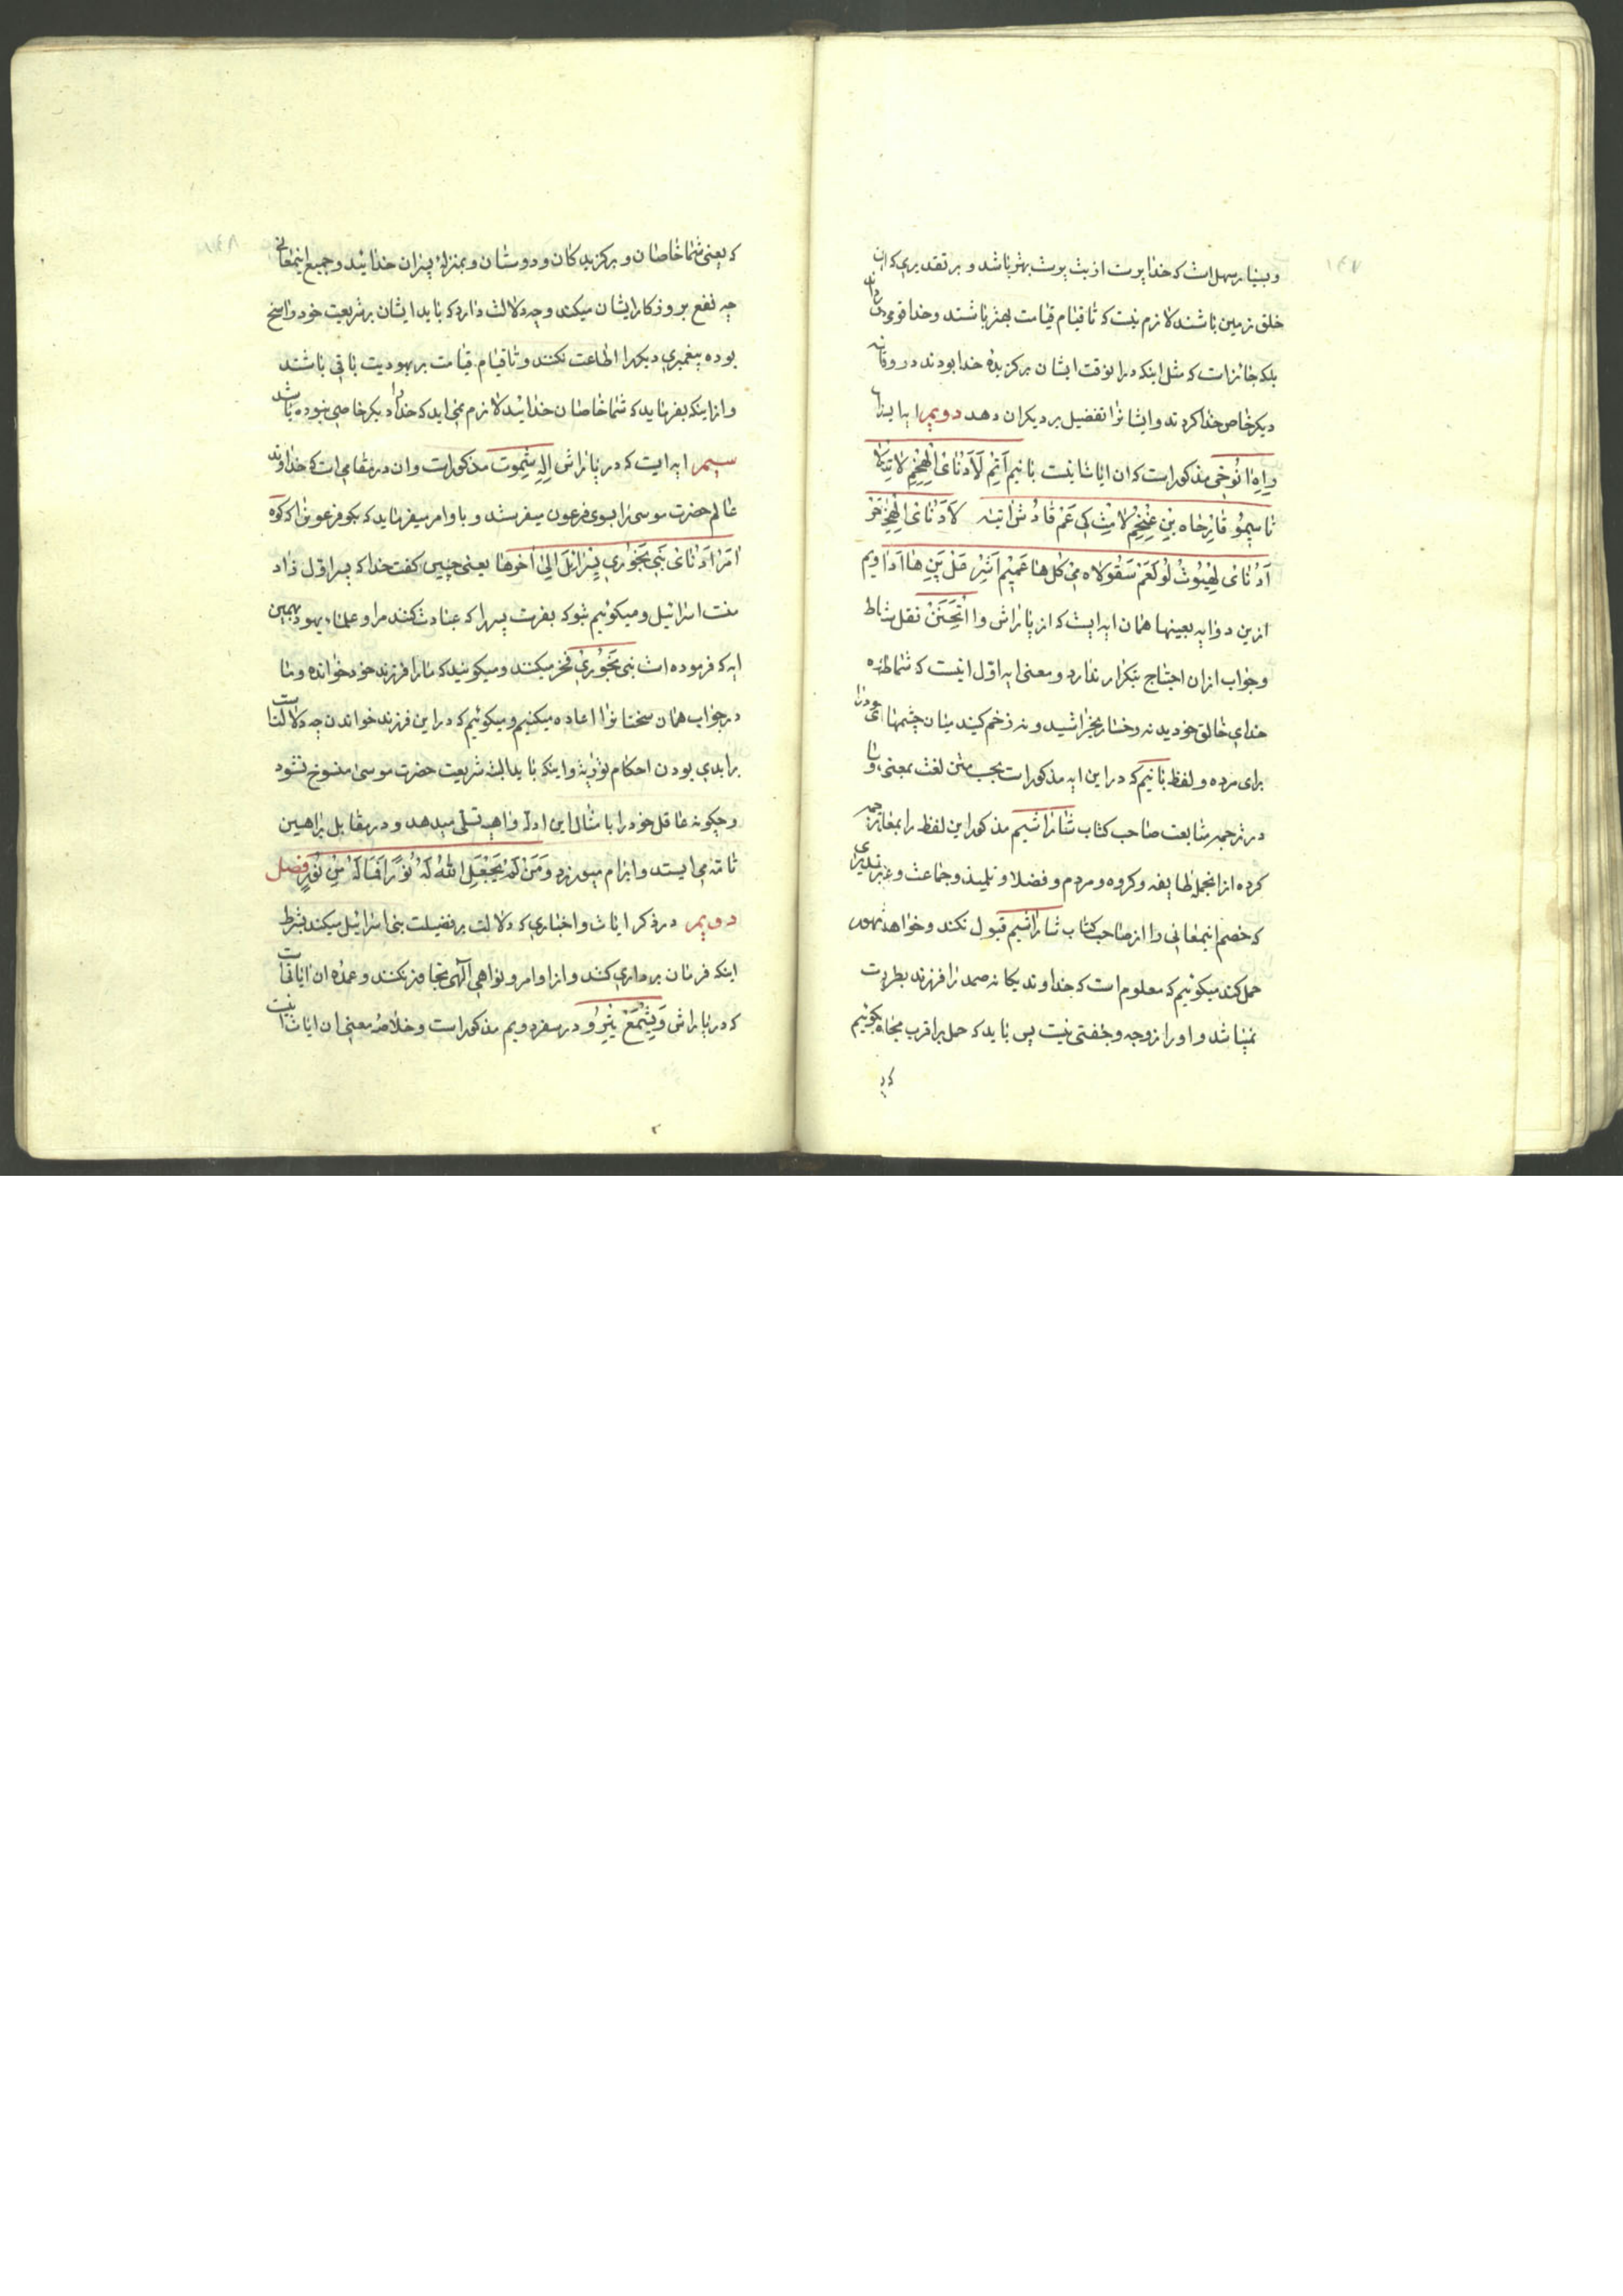 ۱۴۷
و بسیار سهل است که خدا پرست از بت پرست بهتر باشد و بر تقدیری که ان
خلق زمین باشند لازم نیست که تا قیام قیامت بهتر باشند و خدا قومی
بلکه جائز است که مثل اینکه در انوقت ایشان برگزیدهٔ خدا بودند در
دیگر خاص خدا کردند و ایشانرا تفضیل بر دیگران دهد دویم ایه
وایه انوخی مذکور است که ان ایات اینست بانیم اتیم لادنای الهخم لا
تاسیمو قازخاه بین عنخم لامث کی عم قادش اته لادنای الهخ
ادنای لهیوث لو لعم سقولاه می کل هاعمیم اشر قل پنی هاادا ویم
ازین دو ایه بعینها همان ایه ایست که از پاراش وا اتحنن نقل شد
و جواب ازان احتیاج بتکرار ندارد و معنی ایه اول اینست که شما
خدای خالق خودید نه رخسار بخراشید و نه زخم کنید میان چشمهای خود را
برای مرده و لفظ بانیم که در این ایه مذکور است بحسب متن لغت بمعنی
در ترجمه متابعت صاحب کتاب شاراشیم مذکور این لفظ را بمعانی
کرده از انجمله طایفه و کروه و مردم و فضلا و تلمیذ و جماعت و غیر
که خصم اینمعانی را از صاحب کتاب شاراشیم قبول نکند و خواهد
حمل کند میکوئیم که معلوم است که خداوند یکانه صمد را فرزند بطریق
نمیباشد و او را زوجه و جفتی نیست پس باید که حمل بر اقرب مجاز بکوئیم
که یعنی شما خاصان و برگزیدکان و دوستان و بمنزلهٔ پسران خدائید و جمیع اینمعانی
چه نفع بروزکار ایشان میکند و چه دلالت دارد که باید ایشان بر شریعت خود راسخ
بوده پیغمبری دیگر را اطاعت نکنند و تا قیام قیامت بر یهودیت باقی باشند
و از اینکه بفرماید که شما خاصان خدائید لازم نمی اید که خدا را دیگر خاصی نبوده باشد
سیم ایه ایست که در پاراش اله شموت مذکور است و ان در مقامی است که خداوند
عالم حضرت موسی را بسوی فرعون میفرستد و باو امر میفرماید که بکو فرعون را که کوه
امر ادنای بنی بخوری یسرائل الی اخرها یعنی چنین کفت خدا که پسر اول زاد
منست اسرائیل و میکوئیم بتو که بفرست پسر مرا که عبادت کند مرا و علماء یهود بهمین
ایه که فرموده است بنی بخوری فخر میکنند و میکویند که ما را فرزند خود خوانده و ما
در جواب همان سخنانرا اعاده میکنیم و میکوئیم که در این فرزند خواندن چه دلالت است
بر ابدی بودن احکام توریة و اینکه باید البته شریعت حضرت موسی منسوخ نشود
و چکونه عاقل خود را بامثال این ادلّه واهیه تسلی میدهد و در مقابل براهین
تامّه می ایستد و ابرام میورزد وَمَن لَمْ یَجْعَلِ اللهُ لَهُ نُورًا فَمَا لَهُ مِن نُورٍ فصل
دویم در ذکر ایات و اخباری که دلالت بر فضیلت بنی اسرائیل میکند بشرط
اینکه فرمان برداری کنند و از اوامر و نواهی الهی تجاوز نکنند و عمده ان ایاتی است
که در پاراش ویشمع یثرو در سفر دویم مذکور است و خلاصه معنی ان ایات اینست